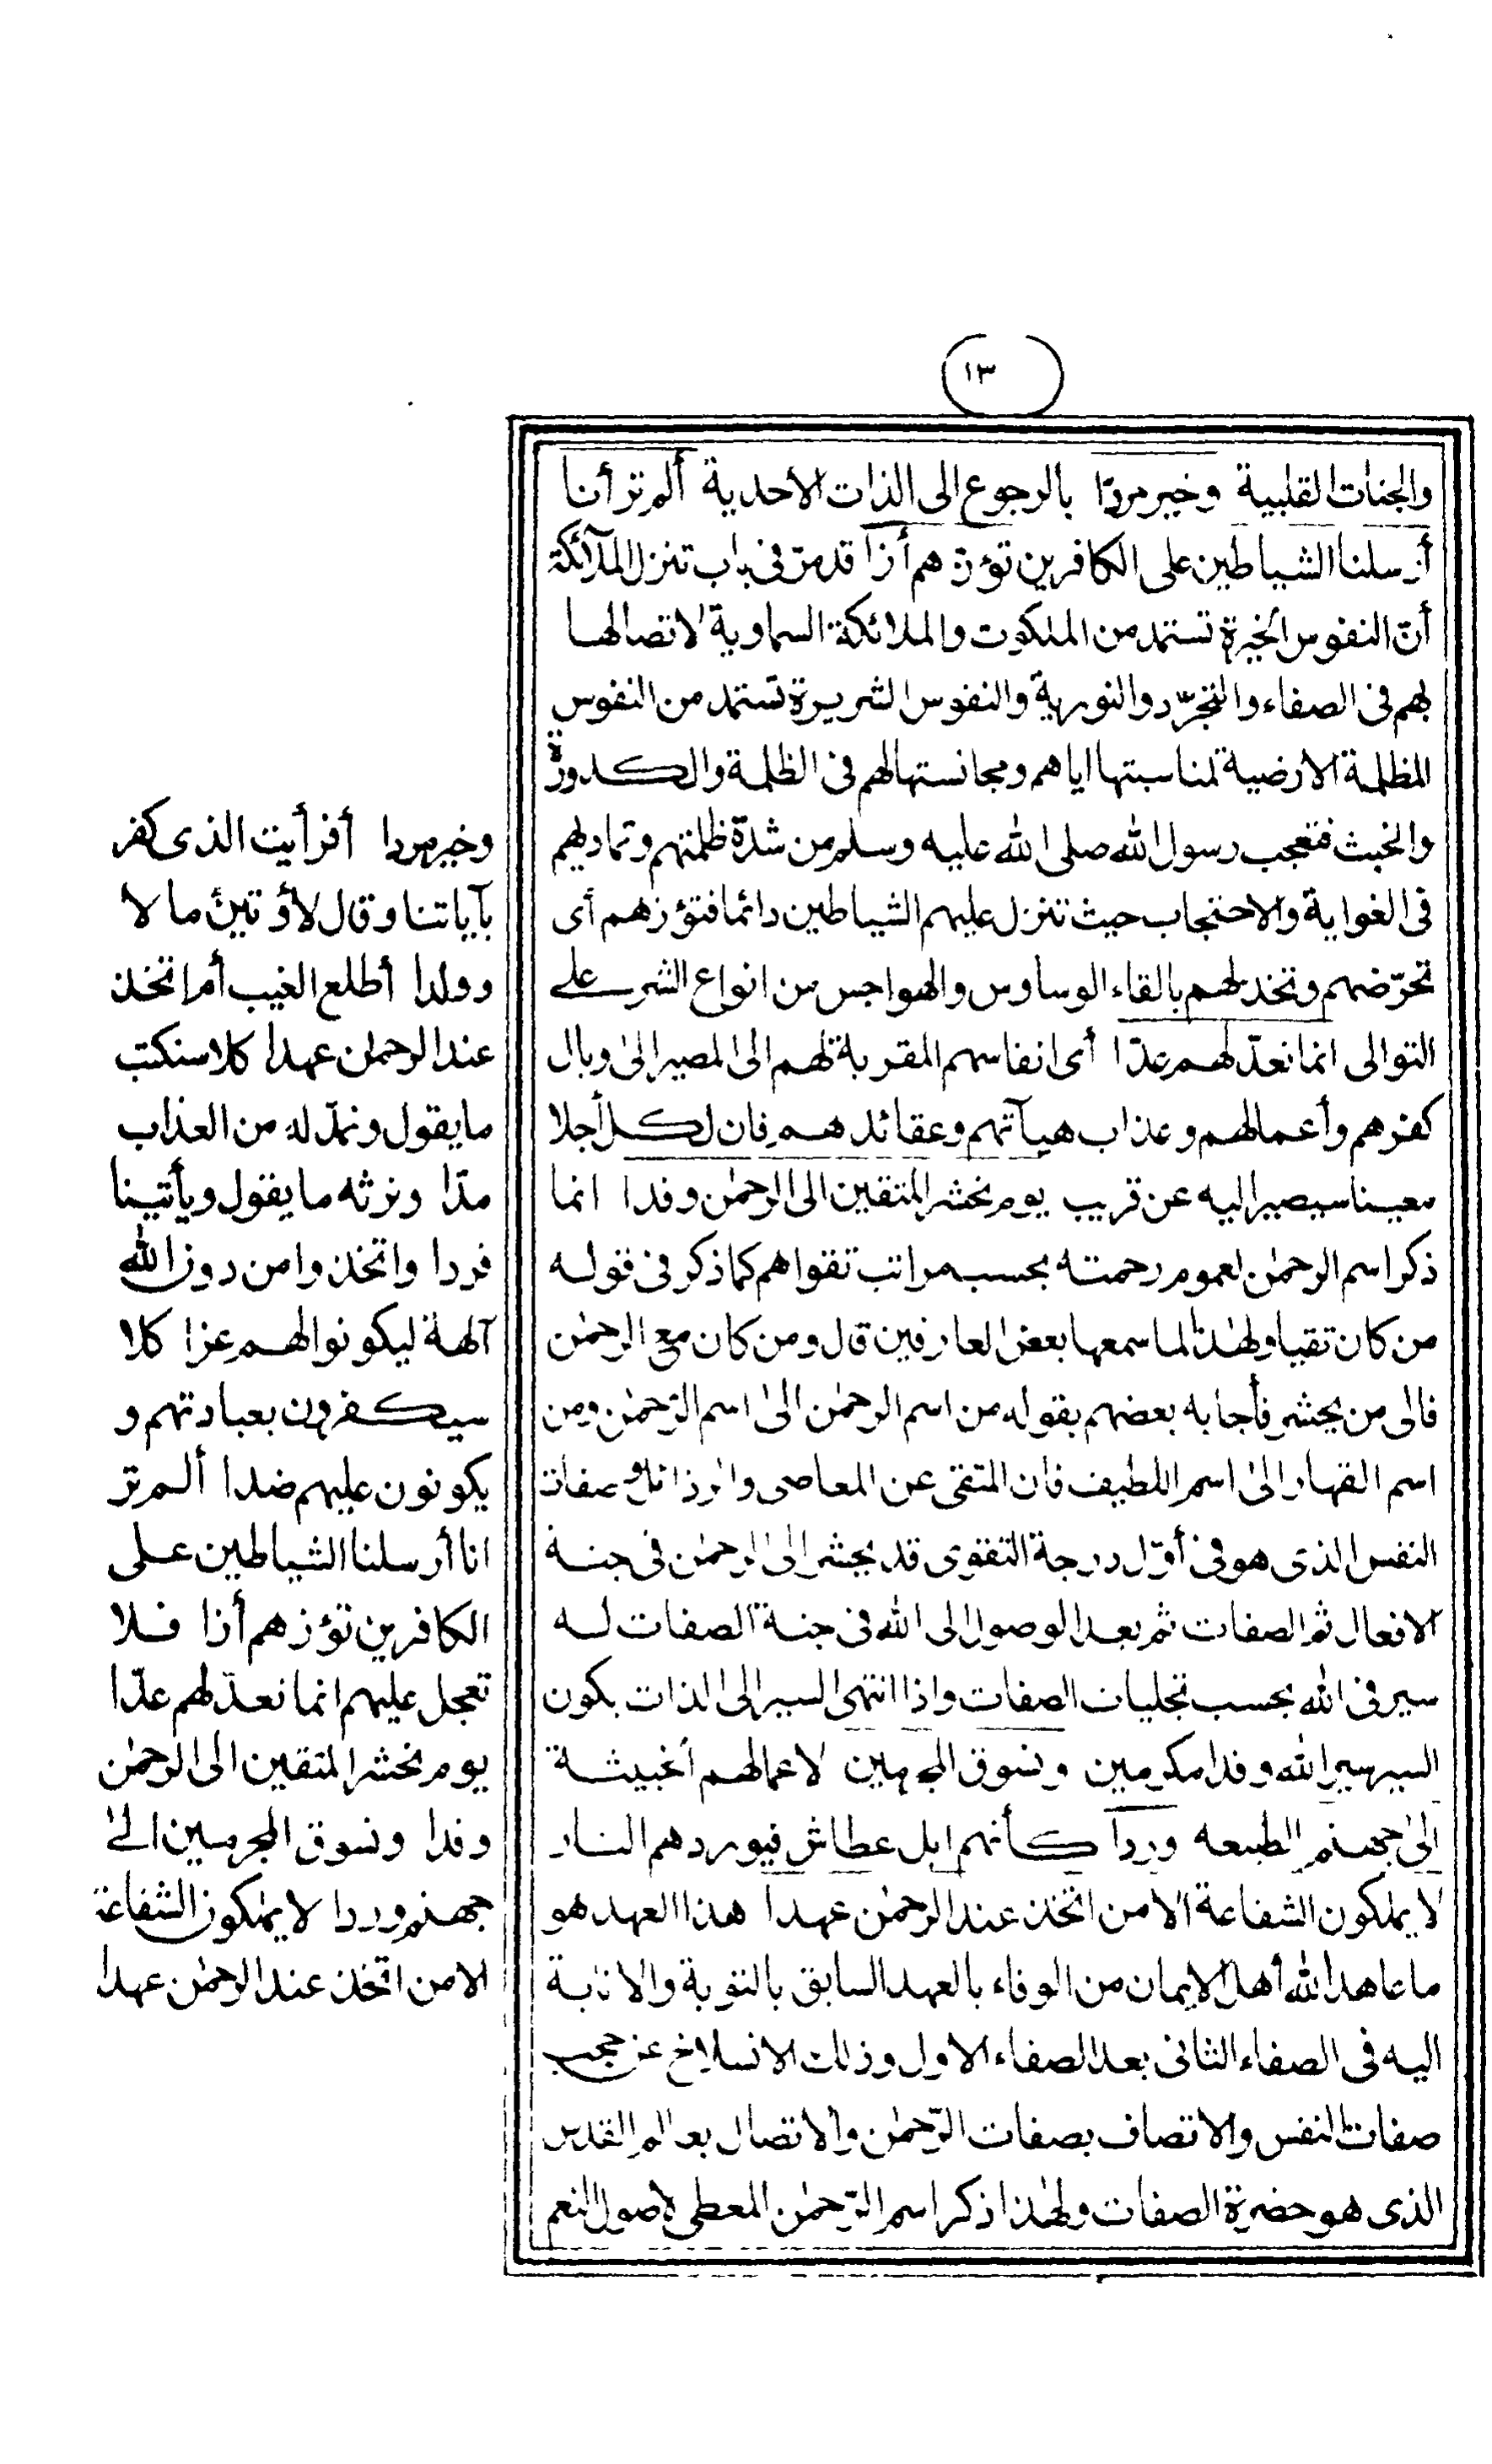 ١٣
والجنات القلبية وخير مردّا بالرجوع الى الذات الأحدية ألم تر أنا
أرسلنا الشياطين على الكافرين تؤزهم أزا قد مرّ فى باب تنزل الملائكة
أنّ النفوس الخيرة تستمد من الملكوت والملائكة السماوية لاتصالها
بهم فى الصفاء والتجرّد والنورية والنفوس الشريرة تستمد من النفوس
المظلمة الارضية لمناسبتها اياهم ومجانستها لهم فى الظلمة والكدورة
والخبث فتعجب رسول الله صلى الله عليه وسلم من شدّة ظلمتهم وتماديهم
فى الغواية والاحتجاب حيث تنزل عليهم الشياطين دائما فتؤزهم أى
تحرّضهم وتخذلهم بالقاء الوساوس والهواجس من انواع الشر على
التوالى انما نعدّ لهم عدّا أى انفاسهم المقربة لهم الى المصير الى وبال
كفرهم وأعمالهم وعذاب هيآتهم وعقائدهم فان لكل أجلا
معينا سيصير اليه عن قريب يوم نحشر المتقين الى الرحمٰن وفدا انما
ذكر اسم الرحمٰن لعموم رحمته بحسب مراتب تقواهم كما ذكر فى قوله
من كان تقيا ولهذا لما سمعها بعض العارفين قال ومن كان مع الرحمٰن
فالى من يحشر فأجابه بعضهم بقوله من اسم الرحمٰن الى اسم الرّحمٰن ومن
اسم القهار الى اسم اللطيف فان المتقى عن المعاصى والرذائل وصفات
النفس الذى هو فى أوّل درجة التقوى قد يحشر الى الرحمٰن فى جنة
الافعال ثم الصفات ثم بعد الوصول الى الله فى جنة الصفات له
سير فى الله بحسب تجليات الصفات واذا انتهى السير الى الذات يكون
السير سير الله وفدا مكرمين ونسوق المجرمين لاعمالهم الخبيثة
الى جهنم الطبيعه وردا كأنهم ابل عطاش فيوردهم النار
لا يملكون الشفاعة الا من اتخذ عند الرحمٰن عهدا هذا العهد هو
ما عاهد الله أهل الايمان من الوفاء بالعهد السابق بالتوبة والانابة
اليه فى الصفاء الثانى بعد الصفاء الاول وذلك الانسلاخ عن حجب
صفات النفس والاتصاف بصفات الرّحمٰن والاتصال بعالم القدس
الذى هو حضرة الصفات ولهذا ذكر اسم الرّحمٰن المعطى لاصول النعم
وخير مردا أفرأيت الذى كفر
بآياتنا وقال لأوتين ما لا
وولدا أطلع الغيب أم اتخذ
عند الرحمان عهدا كلا سنكتب
ما يقول ونمدّ له من العذاب
مدّا ونرثه ما يقول ويأتينا
فردا واتخذوا من دون الله
آلهة ليكونوا لهم عزا كلا
سيكفرون بعبادتهم و
يكونون عليهم ضدا ألم تر
انا أرسلنا الشياطين على
الكافرين تؤزهم أزا فلا
تعجل عليهم انما نعدّ لهم عدّا
يوم نحشر المتقين الى الرحمٰن
وفدا ونسوق المجرمين الى
جهنم وردا لا يملكون الشفاعة
الا من اتخذ عند الرحمٰن عهدا